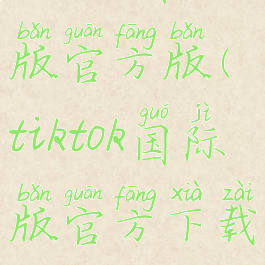 bǎn guān fāng bǎn
版官方版(
guó jì
tiktok国际
bǎn guān fāng xià zài
版官方下载